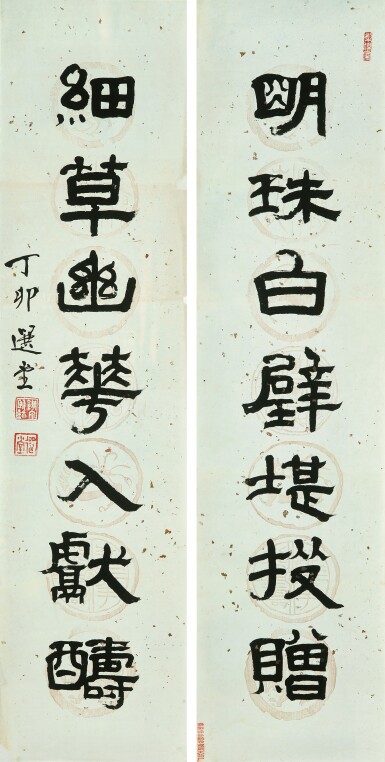 明珠白璧堪投贈
細草幽華入獻醻
丁卯選堂